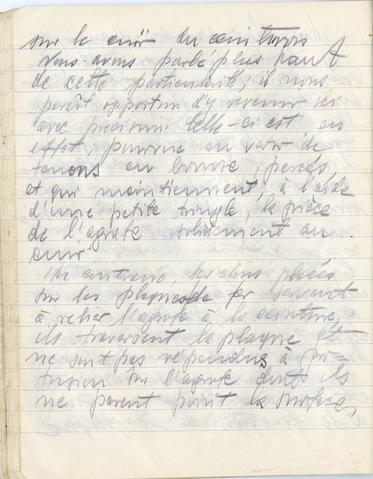 sur le cuir du ceinturon
Nous avons parlé plus haut
de cette particularité; il nous
paraît opportun d'y revenir ici
avec precision. Celle-ci est en
effet, pourvue au verso de
tenons en bronze, percés,
et qui maintiennent, à l'aide
d'une petite tringle, la pièce
de l'agrafe solidement au
cuir
Au contraire, les clous placés
sur les plaques de fer servent
à relier l'agrafe à la ceinture;
ils traversent la plaque et
ne sont pas répandus à pro-
fusion sur l'agrafe dont ils
ne parent point la surface,